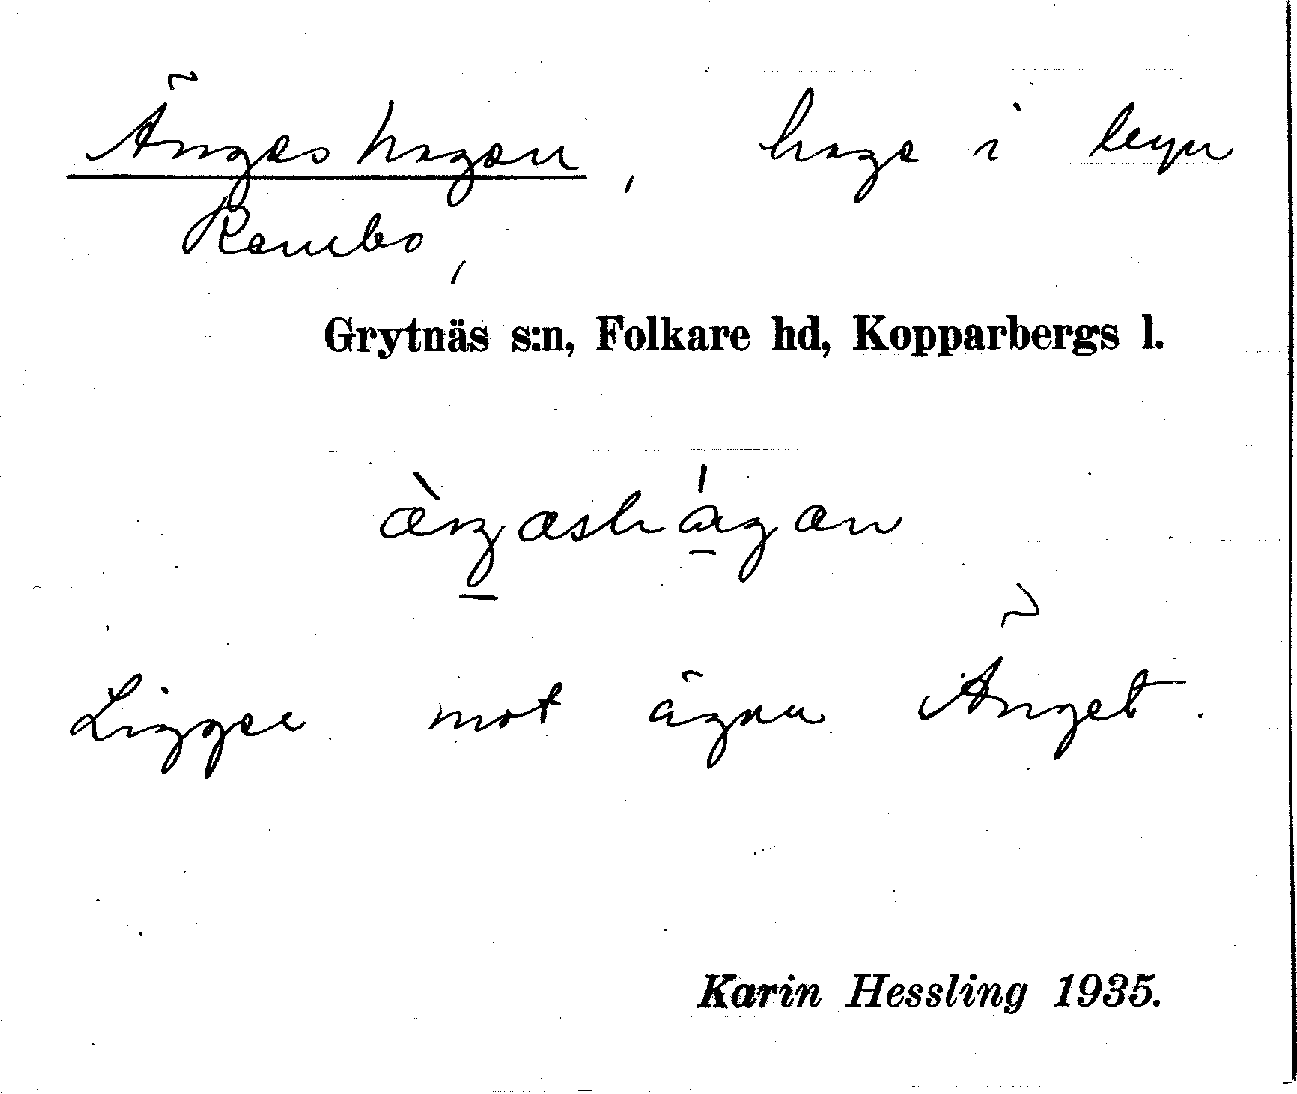 Ängeshagen, hage i byn
Rembo,
Grytnäs s:n, Folkare hd, Kopparbergs l.
Ligger mot ägan Änget.
Karin Hessling 1935.